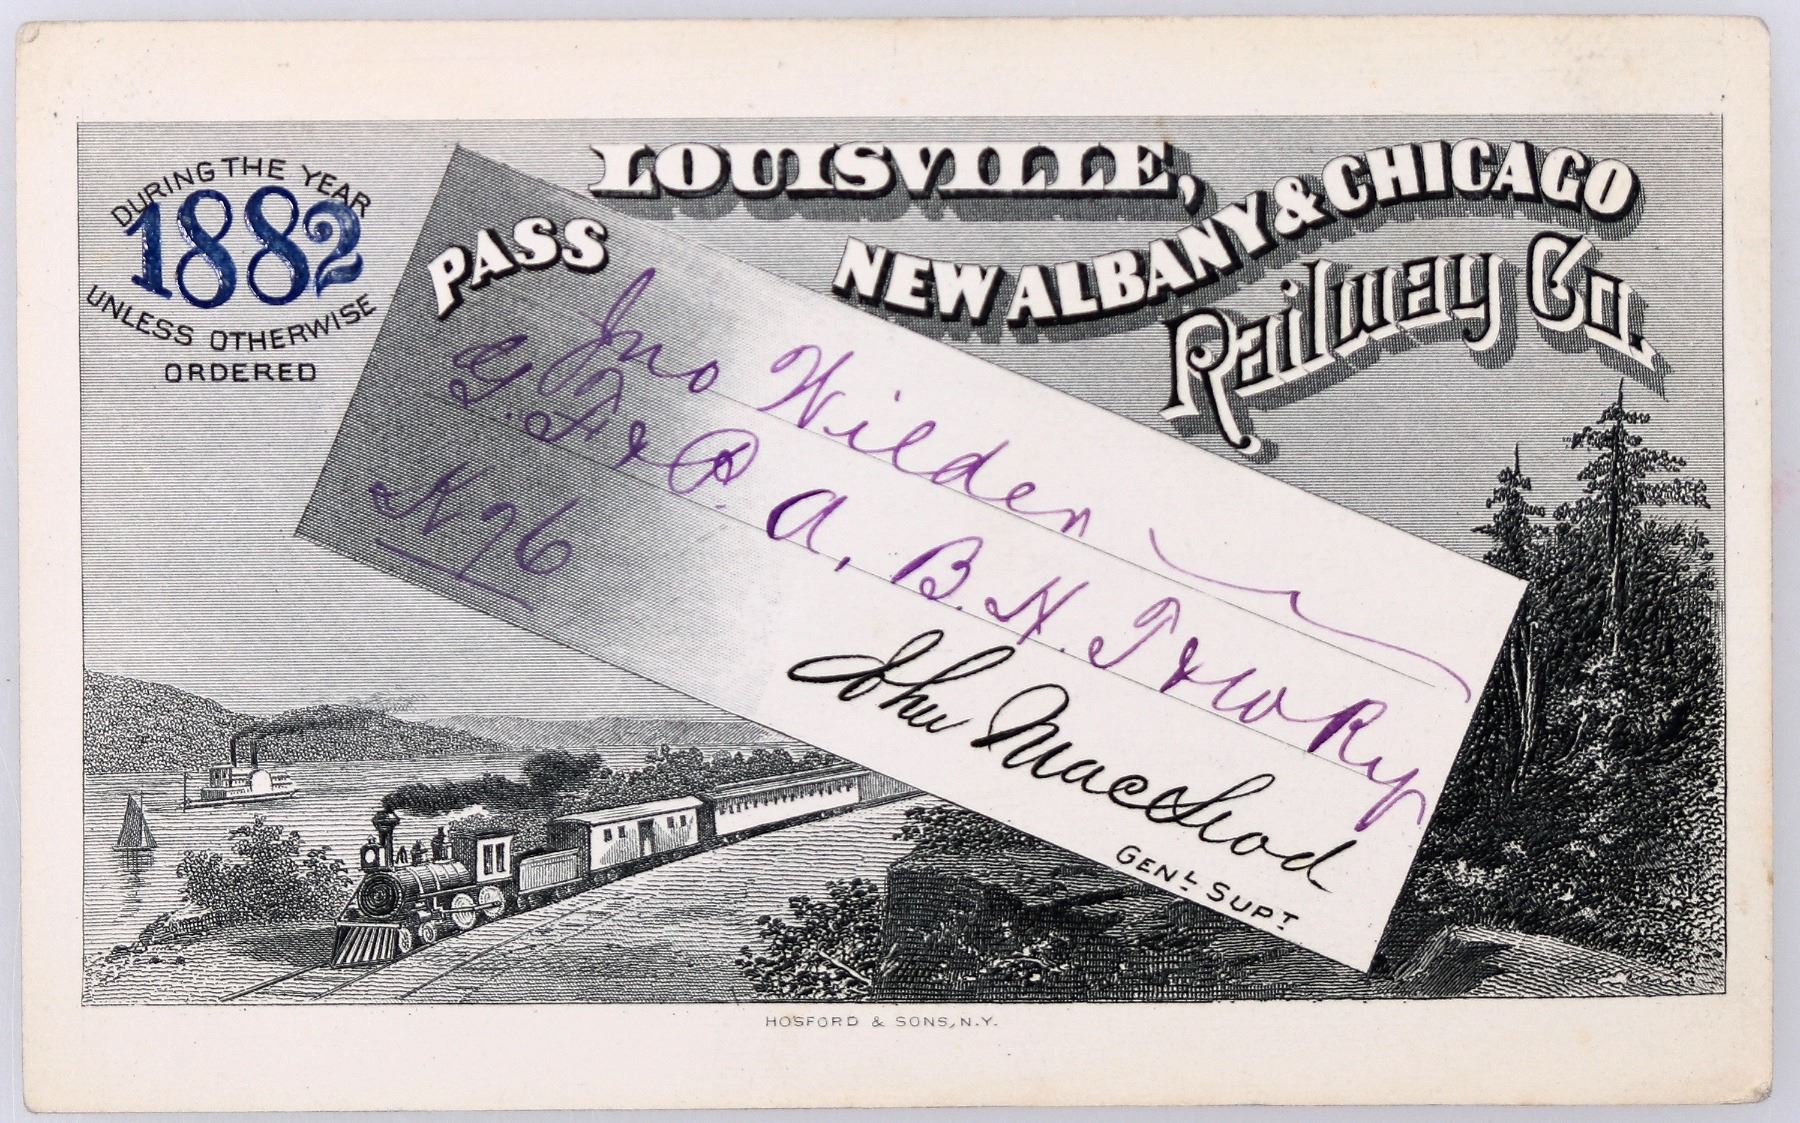 DURING THE YEAR
1882
UNLESS OTHERWISE
ORDERED
LOUISVILLE,
NEW ALBANY & CHICAGO
Railway Co.
PASS
Jno Wilden
G. F. & P. A. B. H. T & W Ry
K 76
John MacLeod
GENL SUPT
HOSFORD & SONS, N.Y.